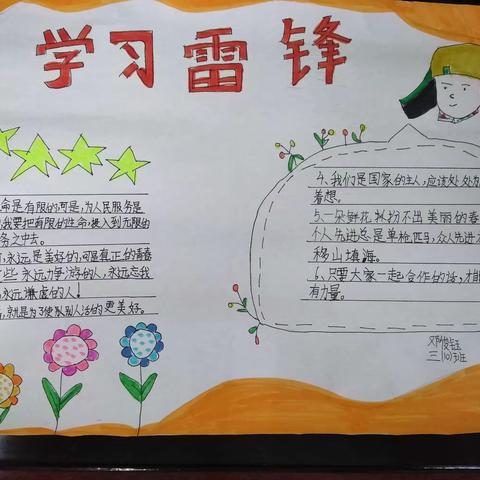 学习雷锋
命是有限的,可是,为人民服务是
我要把有限的生命,投入到无限的
务之中去。
永远是美好的,可是真正的青春
些永远力争上游的人,永远忘我
永远谦虚的人!
就是为了使别人活的更美好。
4、我们是国家的主人,应该处处为
着想。
5、一朵鲜花打扮不出美丽的春
个人先进总是单枪匹马,众人先进才
移山填海。
6、只要大家一起合作的话,才能
有力量。
三(10)班